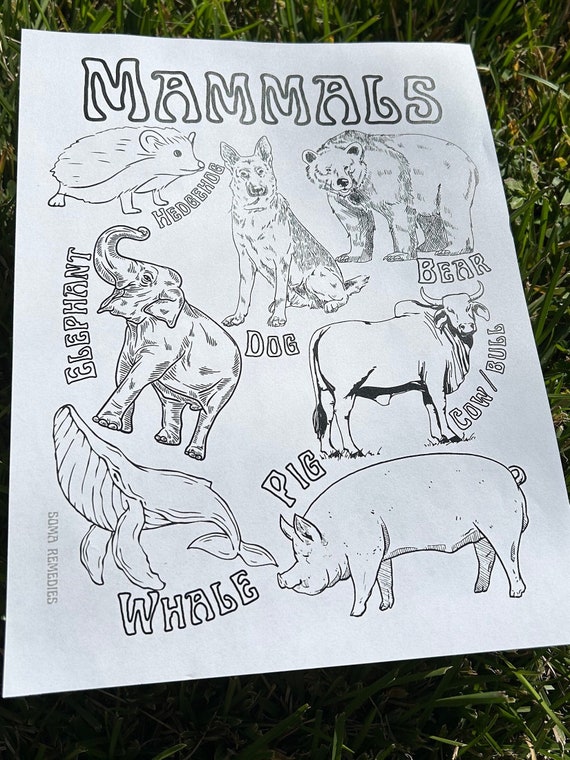 MAMMALS
HEDGEHOG
BEAR
ELEPHANT
DOG
COW/BULL
PIG
WHALE
SOMA REMEDIES